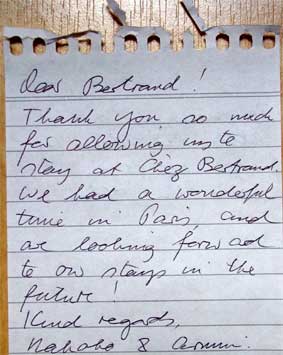 Dear Bertrand!
Thank you so much
for allowing us to
stay at Chez Bertrand.
We had a wonderful
time in Paris, and
are looking forward
to our stays in the
future!
Kind regards,
&